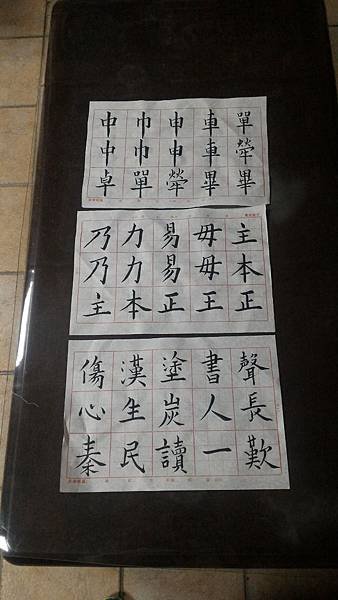 中中卓
巾巾單
申申犖
車車畢
單犖畢
乃乃主
力力本
易易正
毋毋王
主本正
傷心秦
漢生民
塗炭讀
書人一
聲長歎